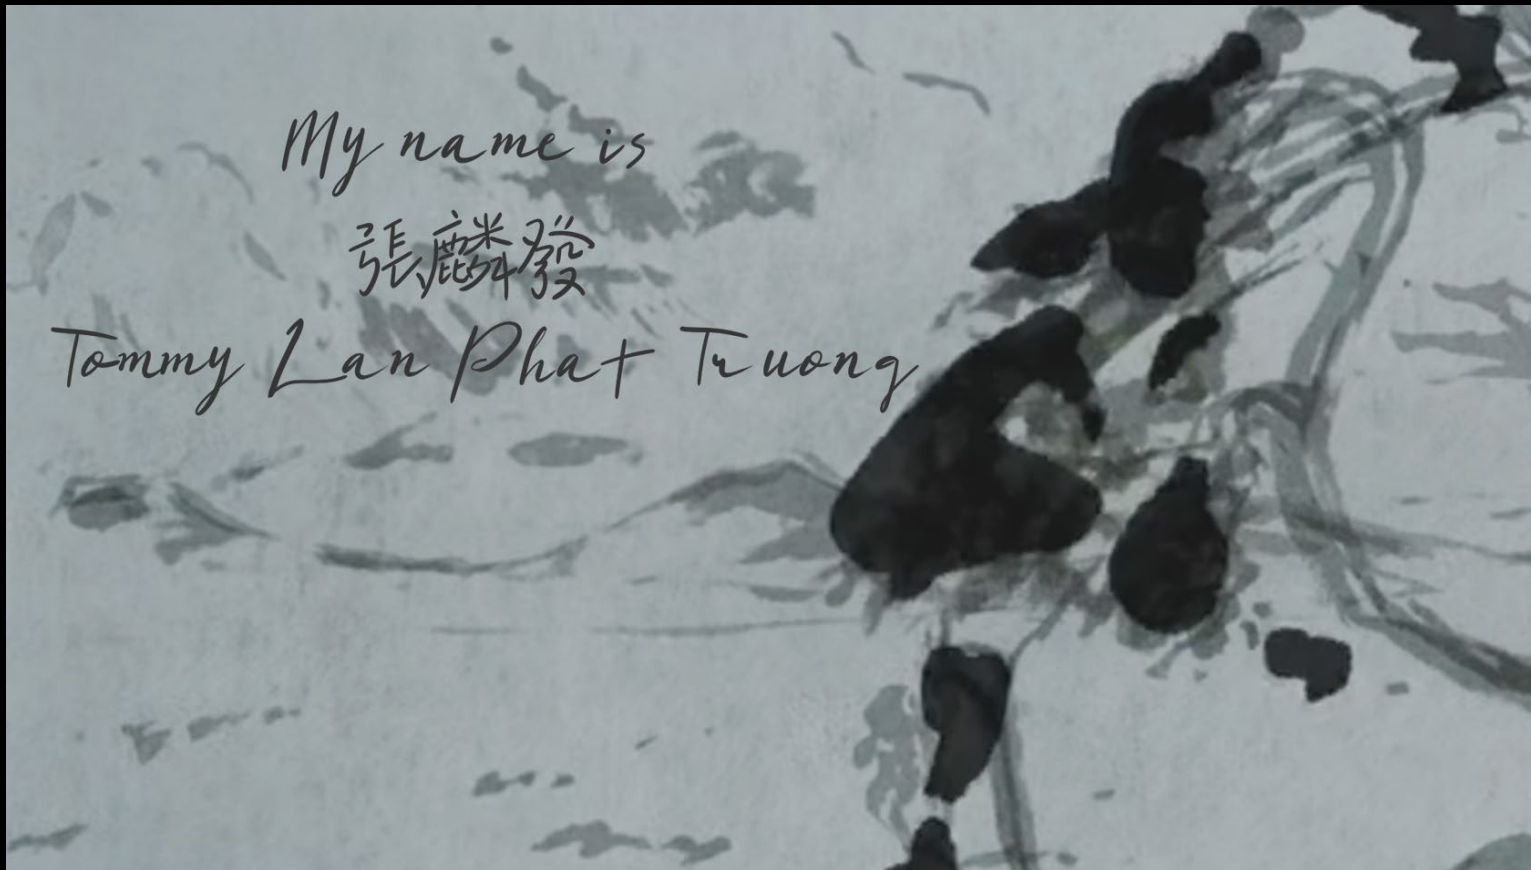 My name is
張麟發
Tommy Lan Phat Truong